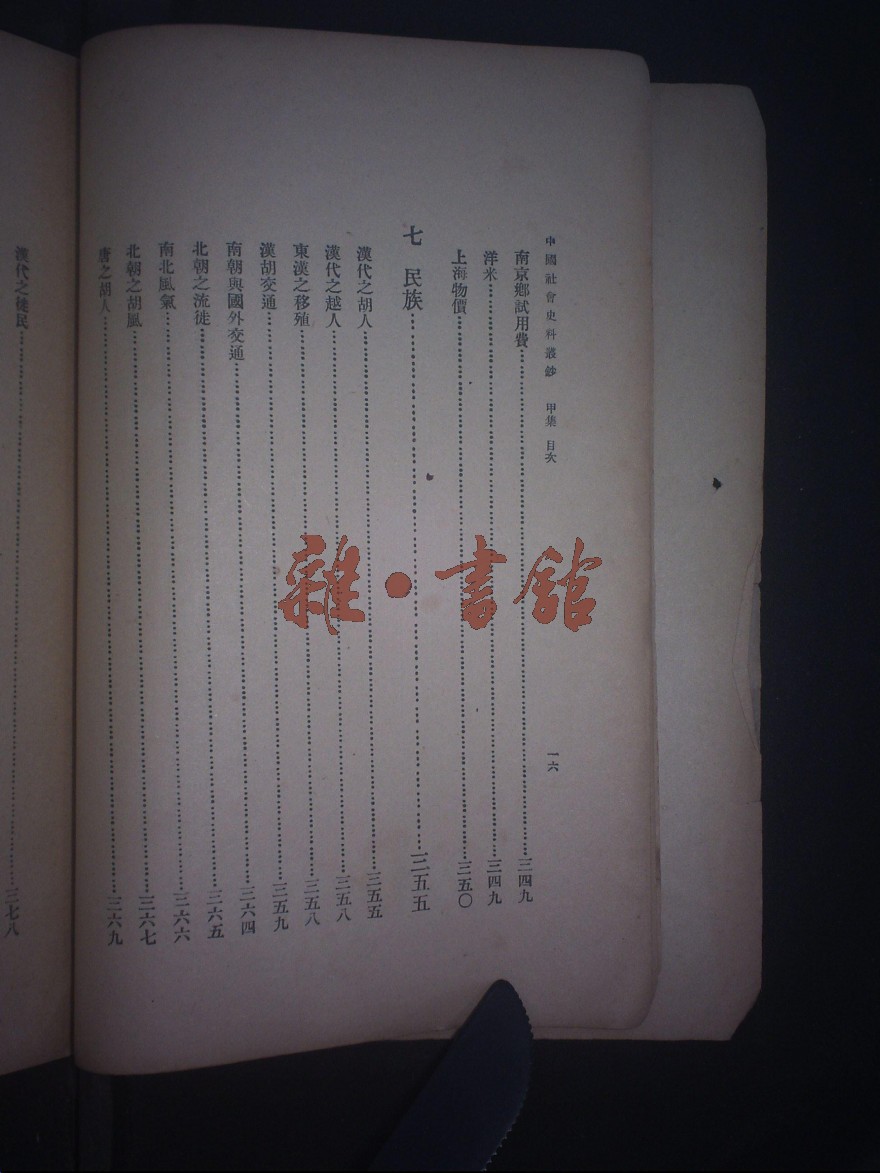 中國社會史料叢鈔 甲集 目次 一六
南京鄉試用費 三四九
洋米 三四九
上海物價 三五〇
七 民族 三五五
漢代之胡人 三五五
漢代之越人 三五八
東漢之移殖 三五八
漢胡交通 三五九
南朝與國外交通 三六四
北朝之流徙 三六五
南北風氣 三六六
北朝之胡風 三六七
唐之胡人 三六九
漢代之徙民 三七八
雜·書館